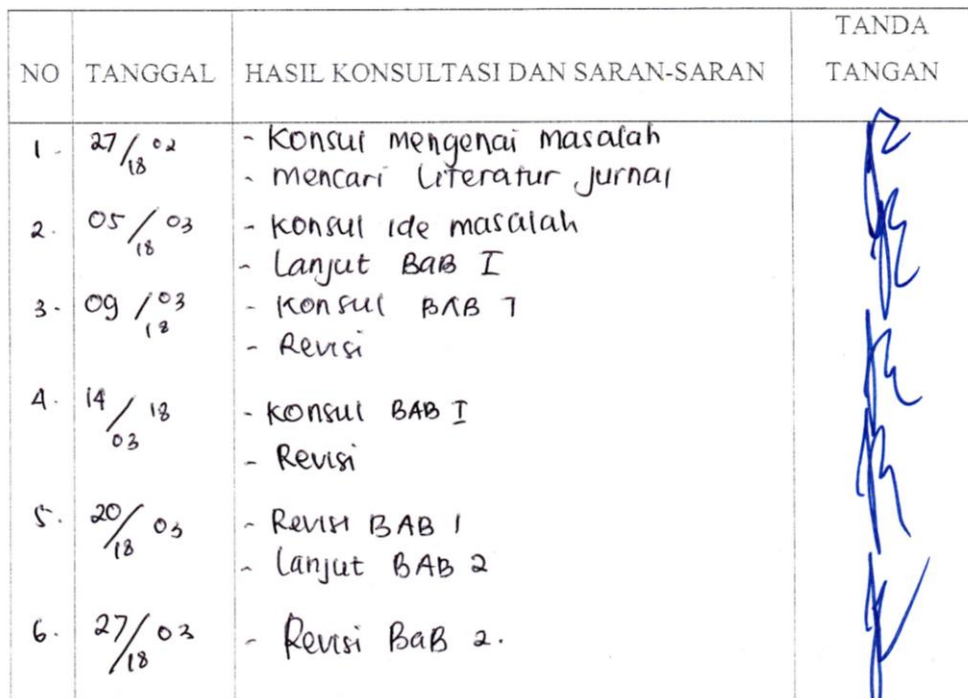 NO TANGGAL HASIL KONSULTASI DAN SARAN-SARAN TANDA TANGAN
1. 27/02 18 - Konsul mengenai masalah
- mencari literatur jurnal
2. 05/03 18 - Konsul ide masalah
- Lanjut BAB I
3. 09/03 18 - Konsul BAB 1
- Revisi
4. 14/03 18 - Konsul BAB I
- Revisi
5. 20/03 18 - Revisi BAB 1
- Lanjut BAB 2
6. 27/03 18 - Revisi BAB 2.